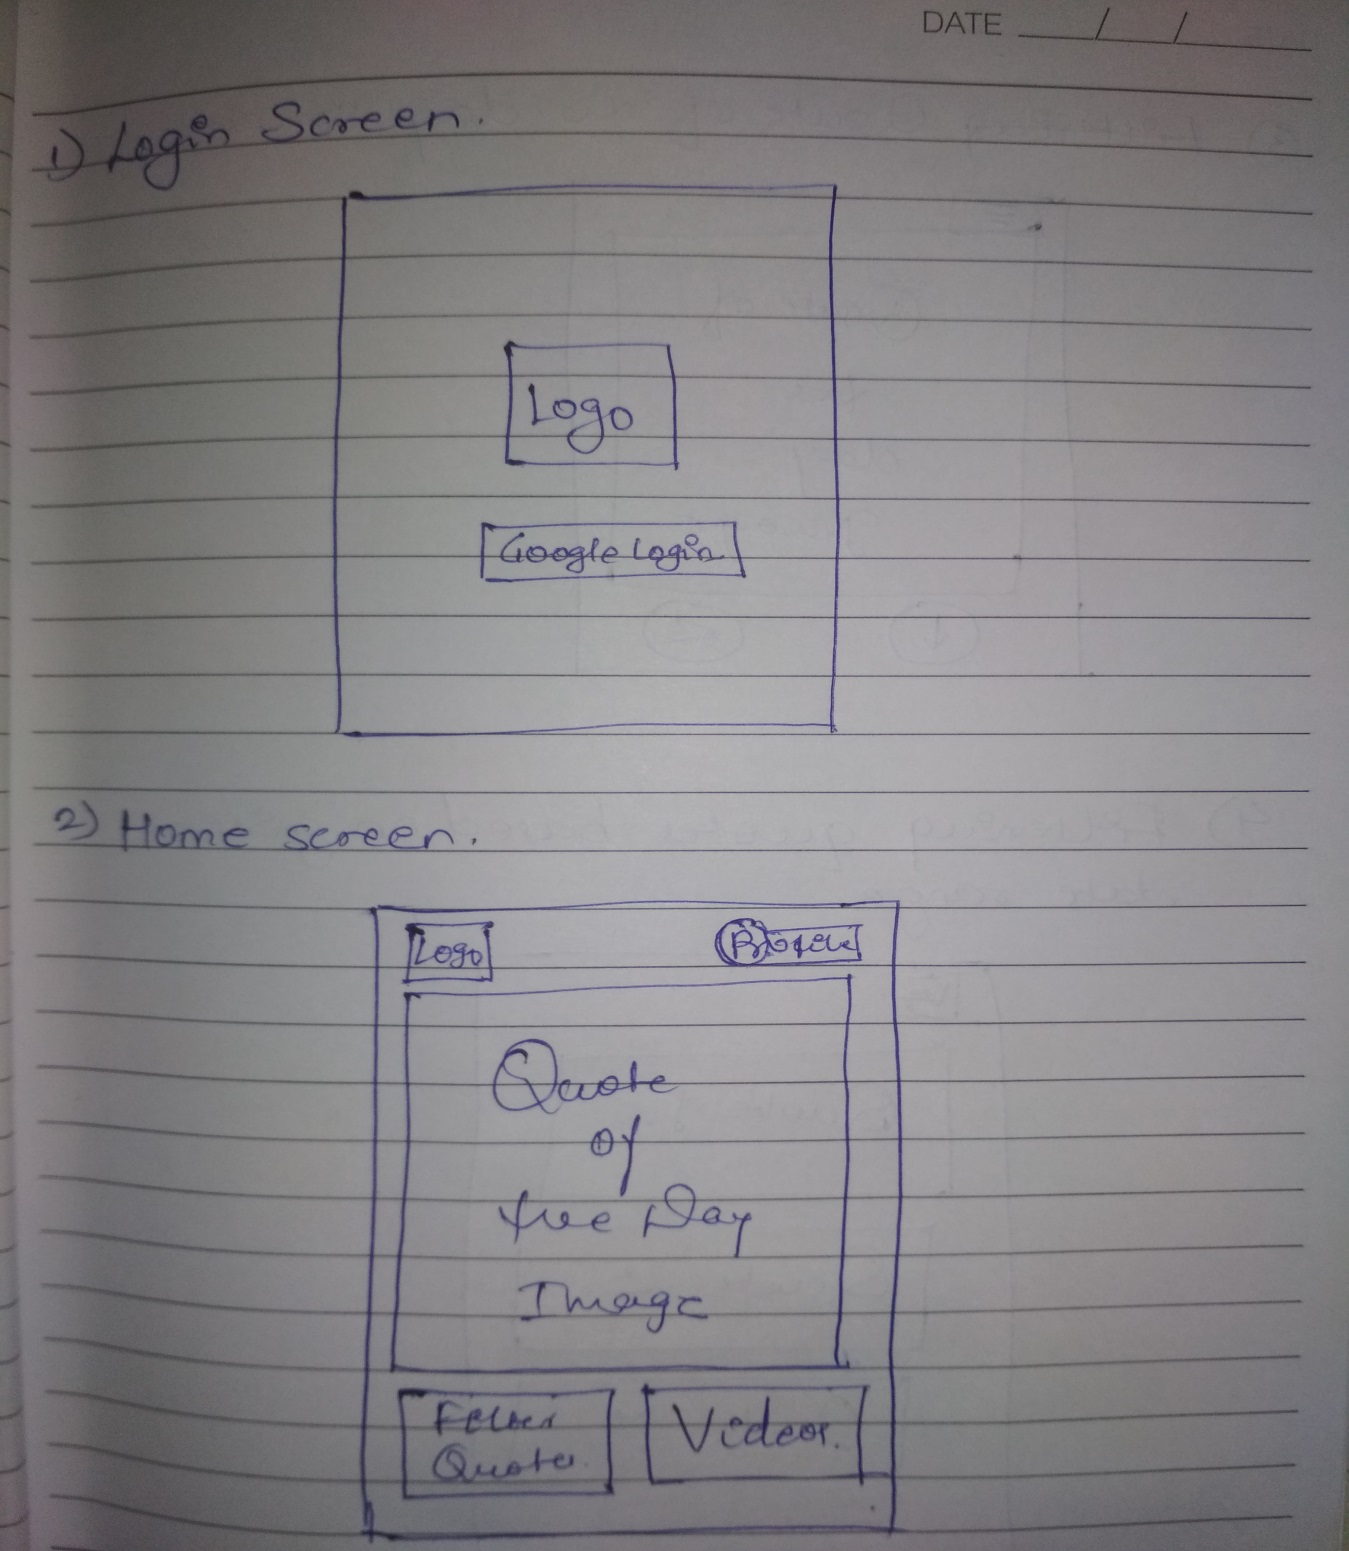 DATE / /
1) Login Screen.
Logo
Google Login
2) Home screen.
Logo
Profile
Quote
of
the Day
Image
Filter
Quotes
Videos.